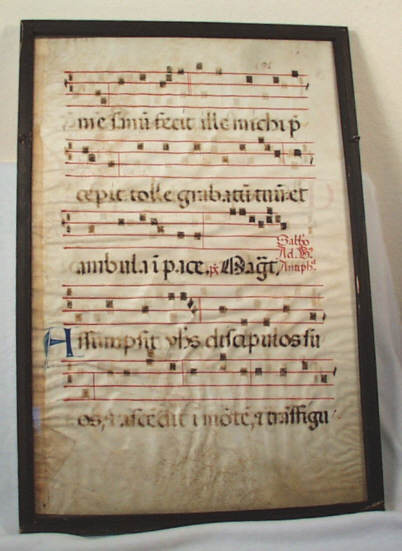 me sanū fecit ille michi p̄
cepit tolle grabatū tuū et
ambula ī pace. p̄s Magt̄.
Sabbō
Ad. B.
Antiph.
Assumpsit yħs discipulos su
os, ⁊ ascēdit ī mōtē, ⁊ trāsfigu